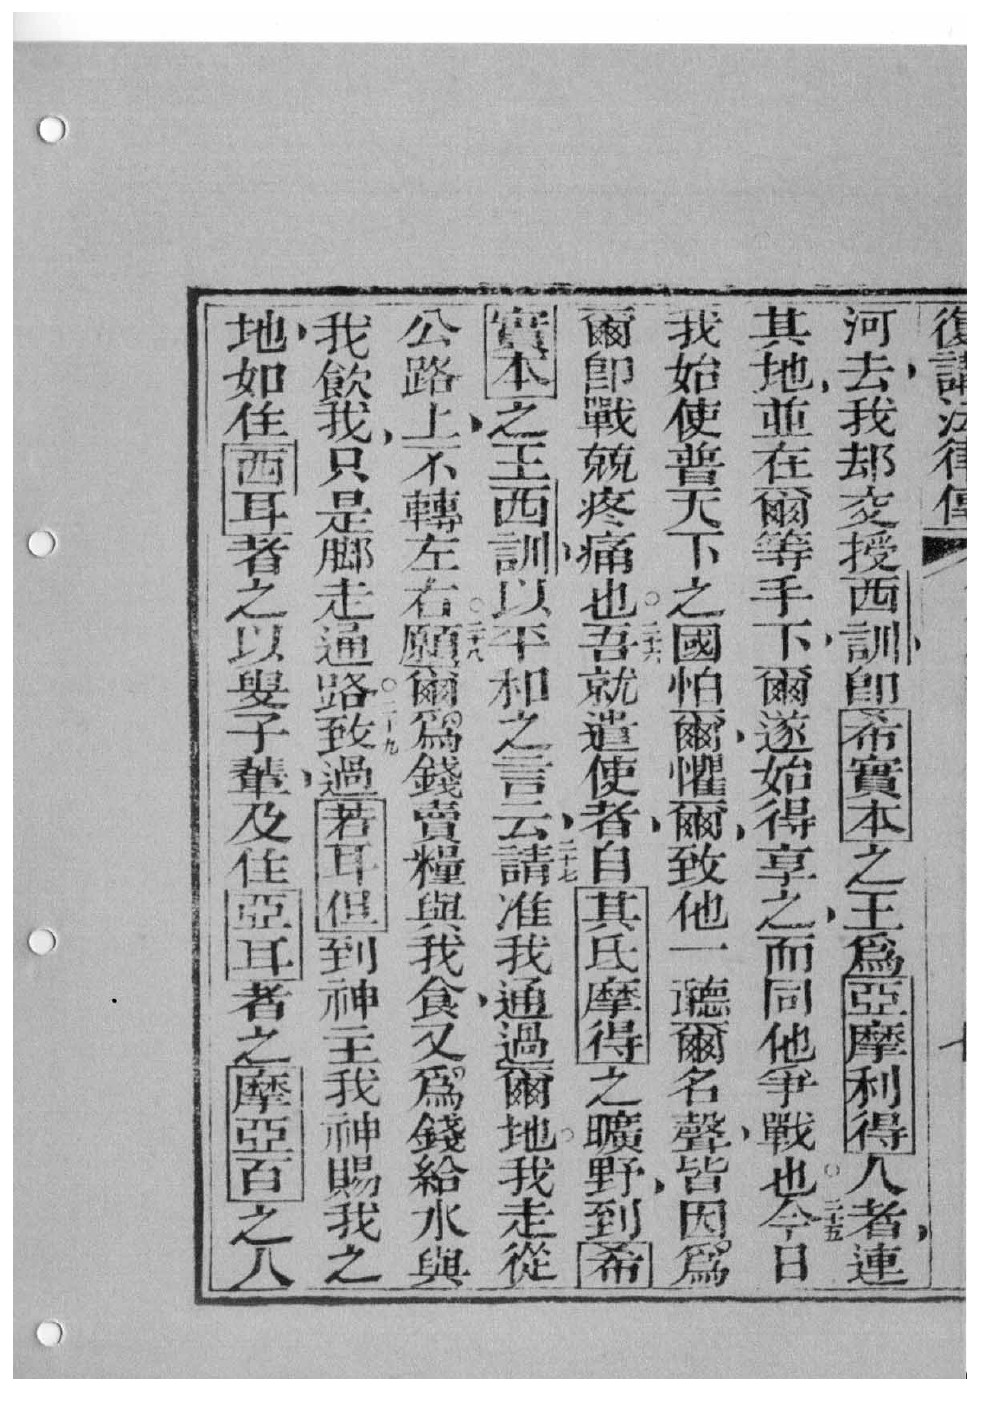 復講法律傳
七
河去我却交授西訓卽希實本之王爲亞摩利得人者連
其地並在爾等手下爾遂始得享之而同他爭戰也○二十五今日
我始使普天下之國怕爾懼爾致他一聽爾名聲皆因爲
爾卽戰兢疼痛也○二十六吾就遣使者自其氐摩得之曠野到希
實本之王西訓以平和之言云二十七請准我通過爾地○我走從
公路上不轉左右○二十八願爾爲錢賣糧與我食又爲錢給水與
我飲我只是腳走通路○二十九致過若耳但到神主我神賜我之
地如住西耳者之以叟子輩及住亞耳者之摩亞百之人